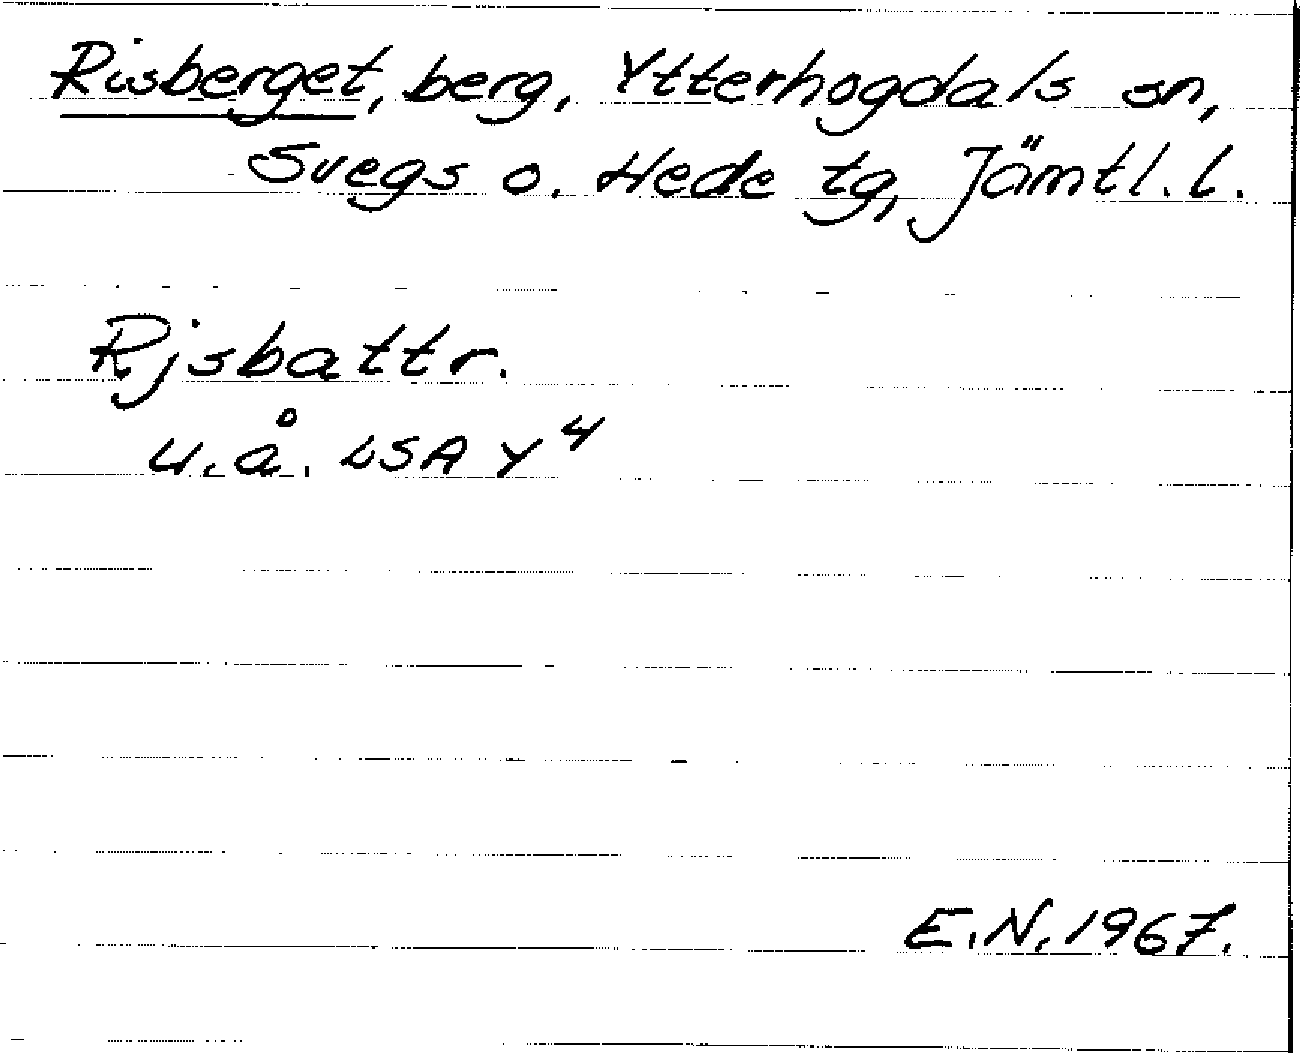 Risberget, berg, Ytterhogdals sn,
Svegs o. Hede tg, Jämtl. l.
Rjsbattr.
u.å. LSA Y4
E.N. 1967.